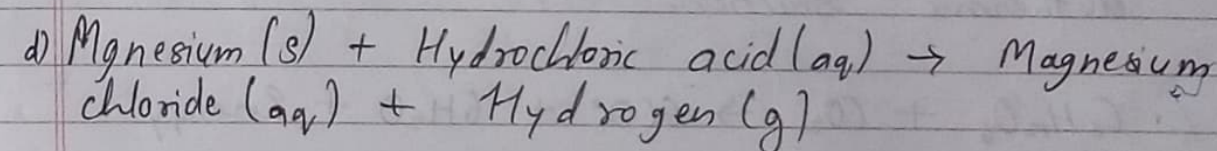 d) Mgnesium (s) + Hydrochloric acid (aq) → Magnesium
chloride (aq) + Hydrogen (g)